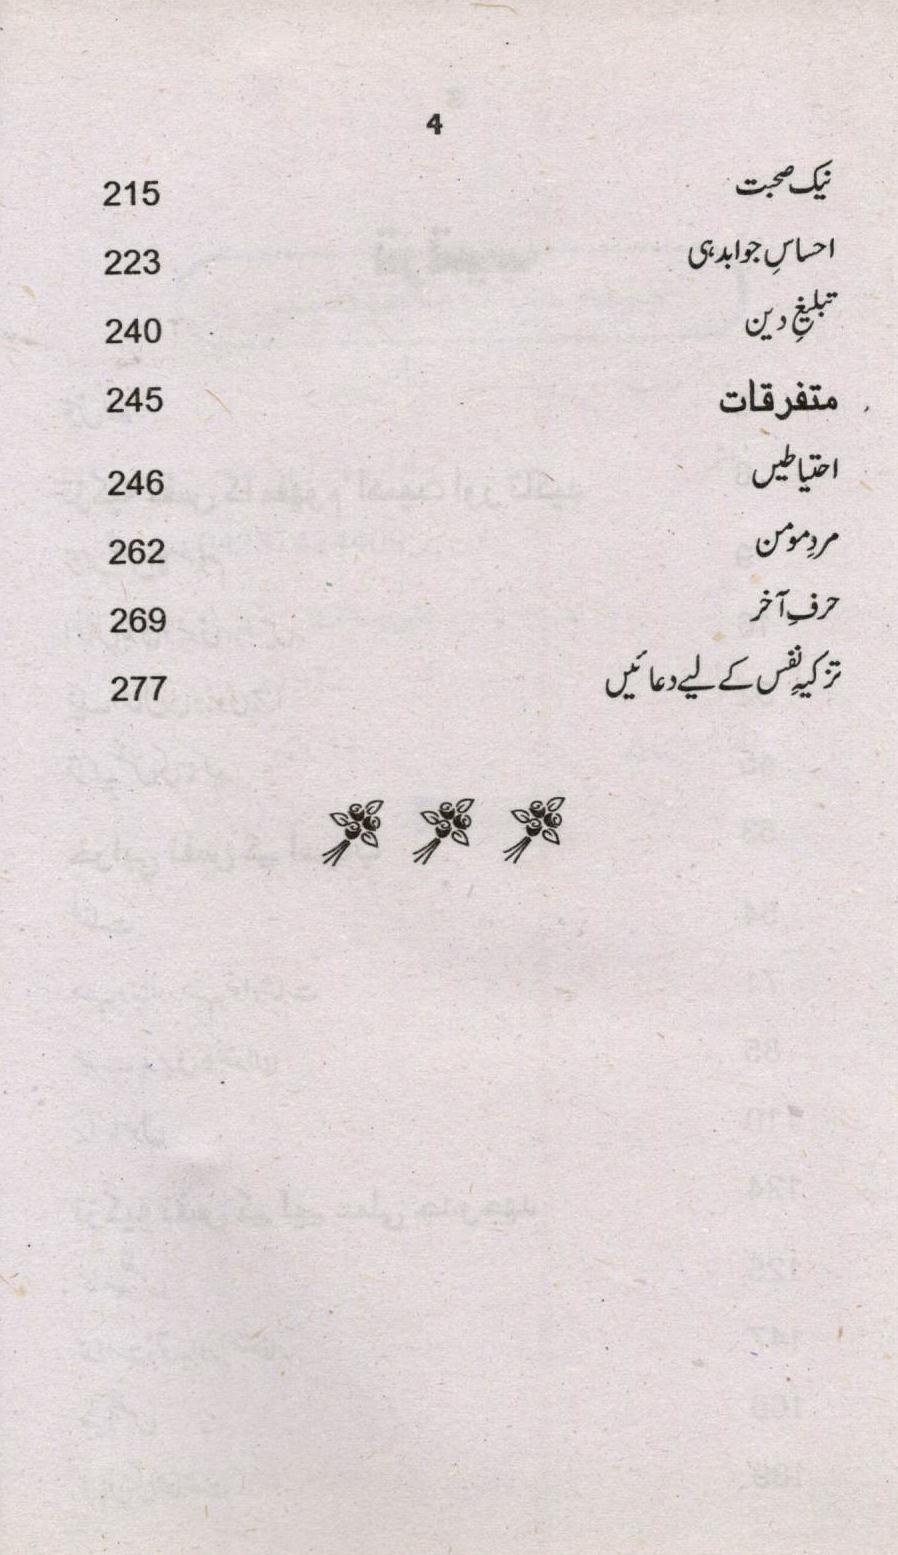 4
نیک صحبت 215
احساسِ جوابدہی 223
تبلیغِ دین 240
متفرقات 245
احتیاطیں 246
مردِ مومن 262
حرفِ آخر 269
تزکیہِ نفس کے لیے دعائیں 277